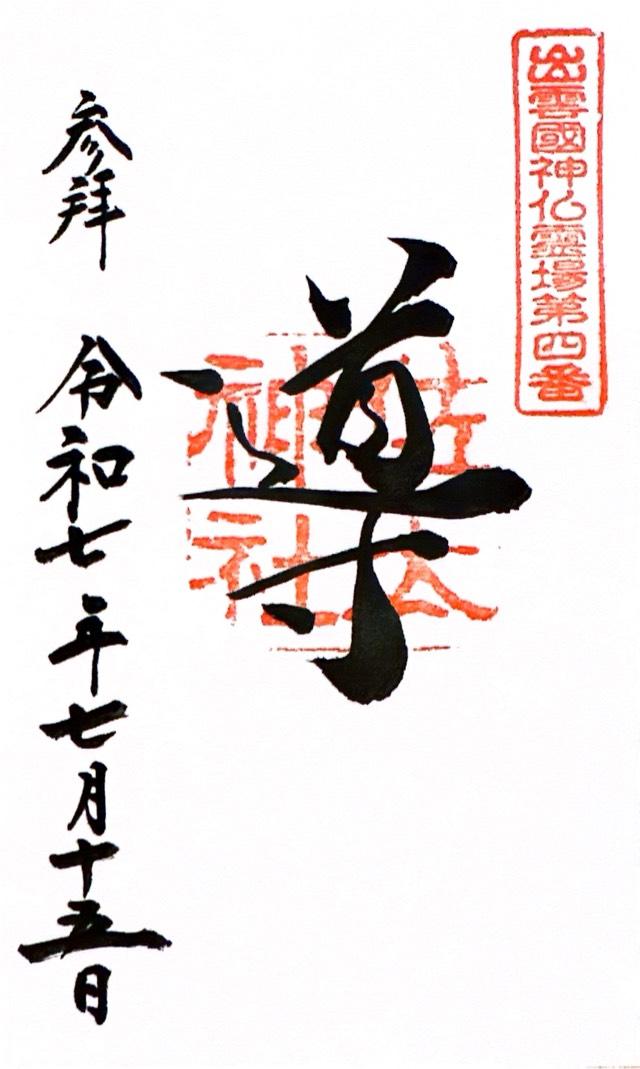 出雲國神仏霊場第四番
導
佐太
神社
参拝 令和七年七月十五日